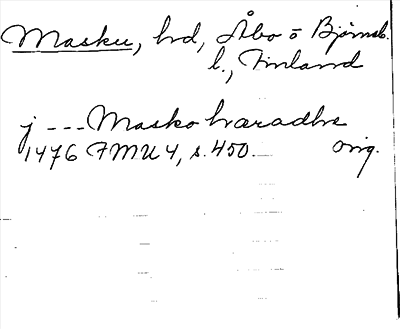 Masku, hd, Åbo o Björneb.
l., Finland
j --- Masko haradhe
1476 FMU 4, s. 450. orig.